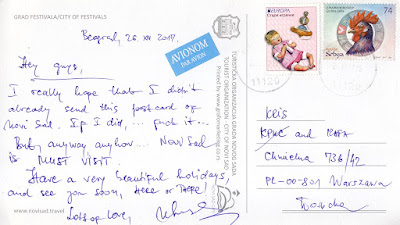 GRAD FESTIVALA/CITY OF FESTIVALS
Beograd, 26. XII
Hey guys,
I really hope that I didn't
already send this postcard of
Novi Sad. If I did, ... fuck it...
But, anyway anyhow... Novi Sad
is MUST VISIT.
Have a very beautiful holidays,
and see you soon, HERE or THERE!
Lots of love,
www.novisad.travel
AVIONOM
PAR AVION
TURISTIČKA ORGANIZACIJA GRADA NOVOG SADA
TOURIST ORGANISATION CITY OF NOVI SAD
EUROPA
Србија
74
Srbija
11120
Kris
and
Chmielna 736/42
PL-00-801 Warszawa